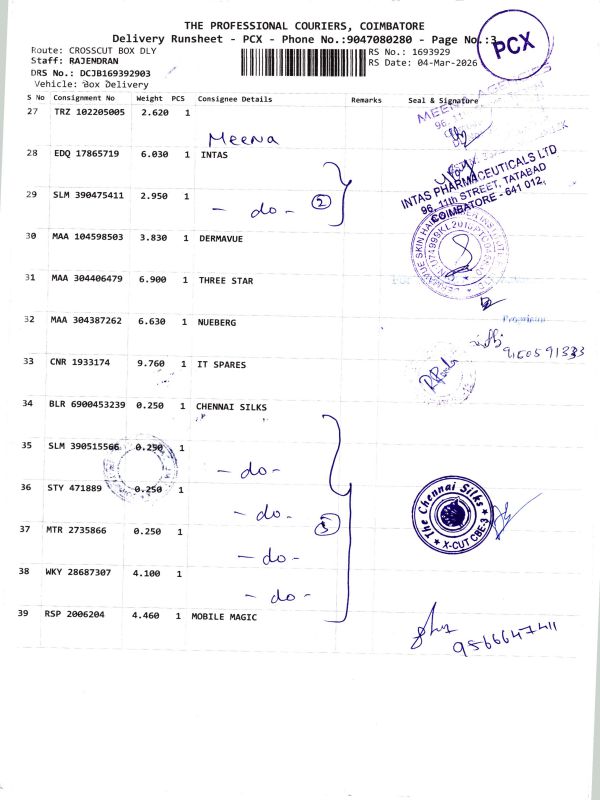 THE PROFESSIONAL COURIERS, COIMBATORE
Delivery Runsheet - PCX - Phone No.:9047080280 - Page No.:3
PCX
Route: CROSSCUT BOX DLY
RS No.: 1693929
Staff: RAJENDRAN
RS Date: 04-Mar-2026
DRS No.: DCJB169392903
Vehicle: Box Delivery
S No Consignment No Weight PCS Consignee Details Remarks Seal & Signature
27 TRZ 102205005 2.620 1
Meena
MEENA AGENCIES
96, 11
28 EDQ 17865719 6.030 1 INTAS
INTAS PHARMACEUTICALS LTD
96, 11th STREET, TATABAD
COIMBATORE - 641 012.
29 SLM 390475411 2.950 1
- do - 2
30 MAA 104598503 3.830 1 DERMAVUE
31 MAA 304406479 6.900 1 THREE STAR
32 MAA 304387262 6.630 1 NUEBERG
9150591333
33 CNR 1933174 9.760 1 IT SPARES
34 BLR 6900453239 0.250 1 CHENNAI SILKS
35 SLM 390515566 0.250 1
- do -
36 STY 471889 0.250 1
- do - 5
The Chennai Silks
X-CUT CBE-3
37 MTR 2735866 0.250 1
- do -
38 WKY 28687307 4.100 1
- do -
39 RSP 2006204 4.460 1 MOBILE MAGIC
9566647411